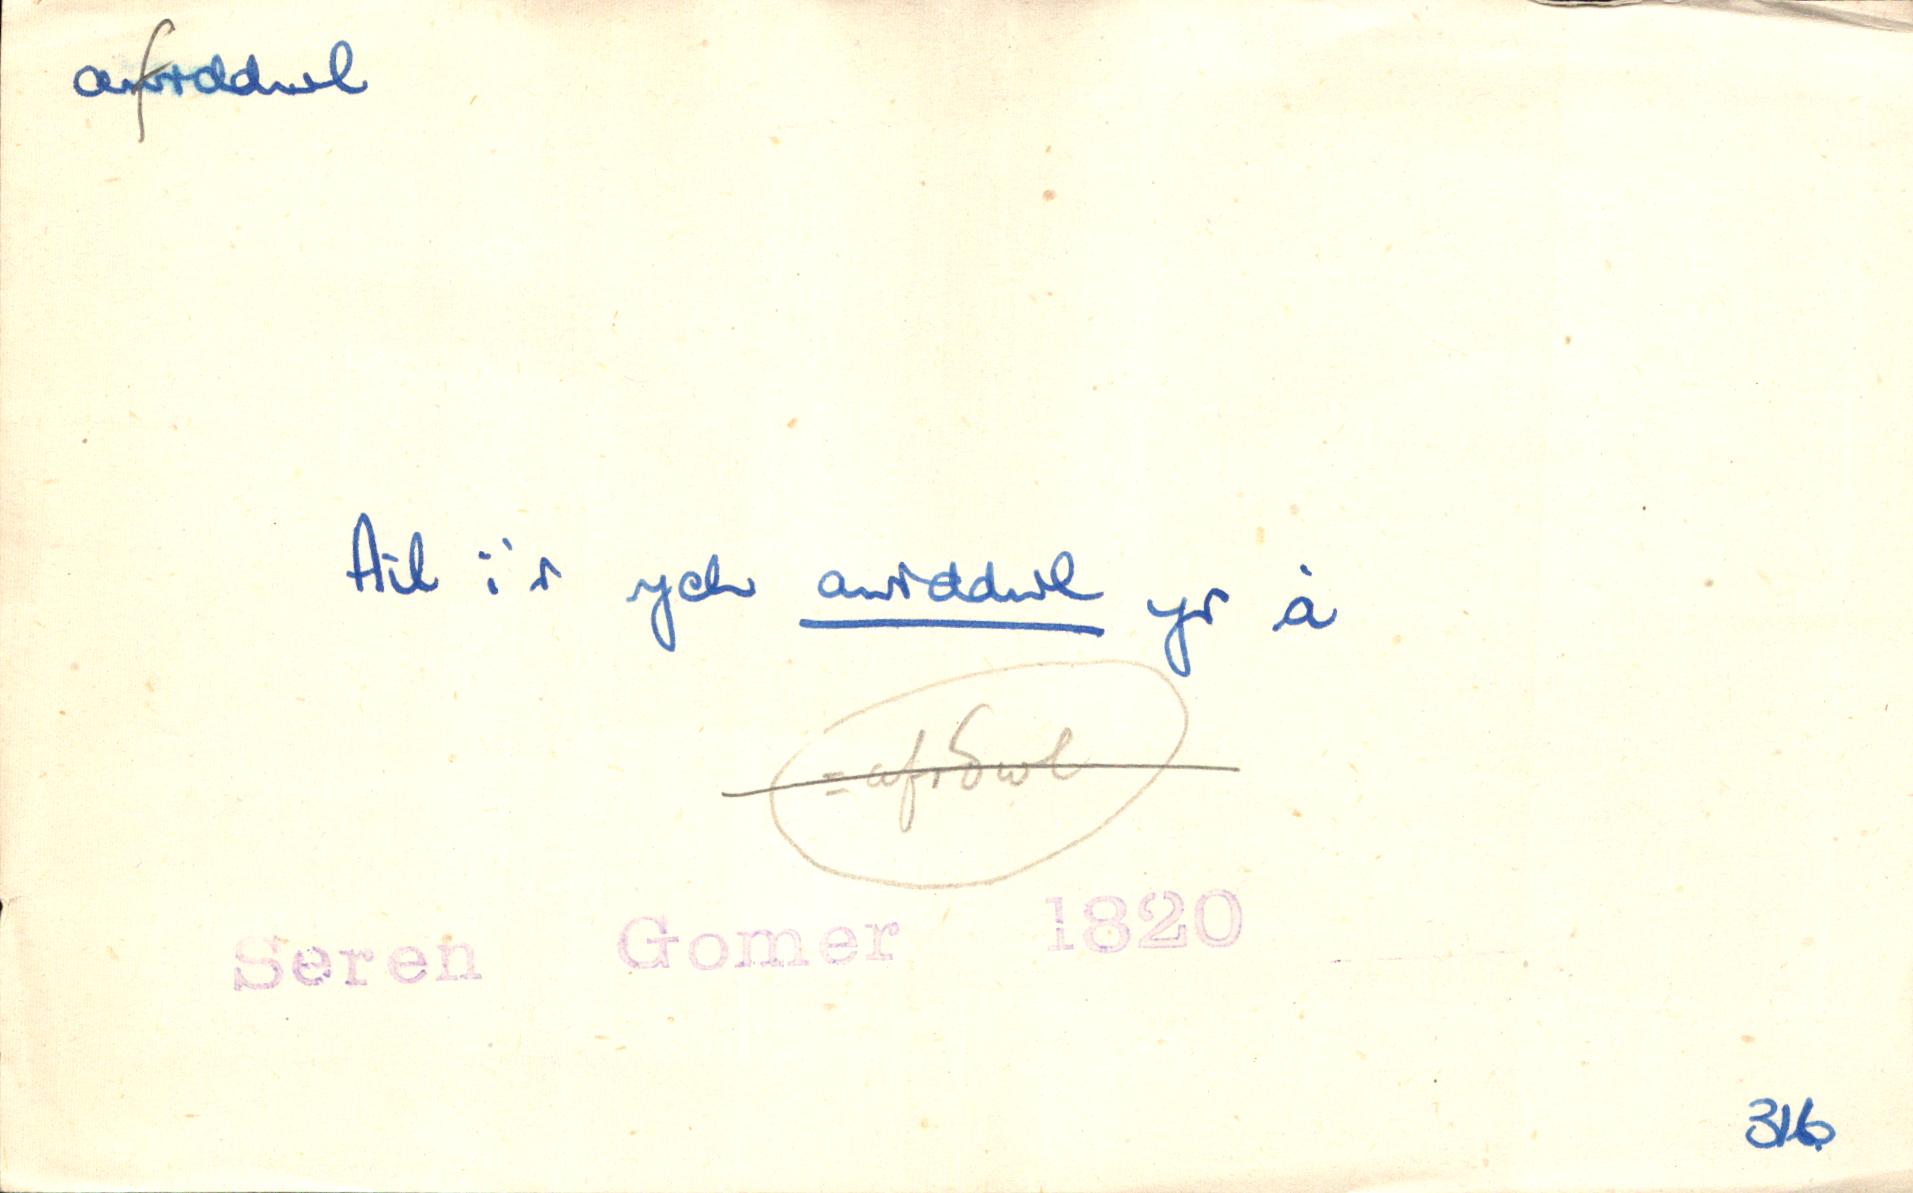 afrddwl
Ail i'r ych awrddwl yr â
= afrδwl
Seren Gomer 1820
316